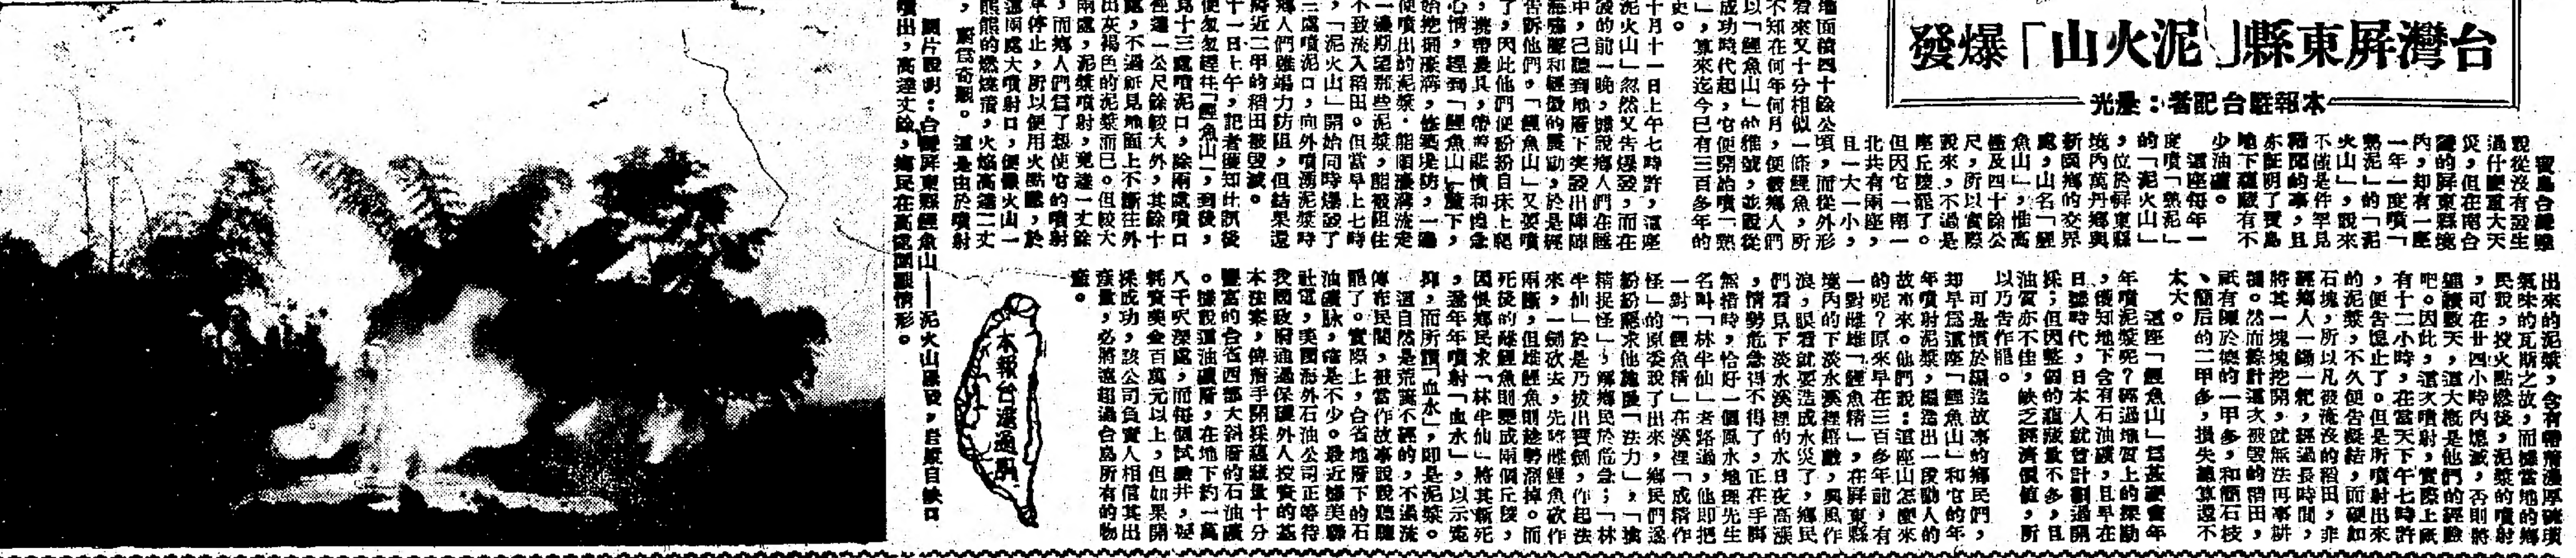 台灣屏東縣「泥火山」爆發
本報駐台記者：星光
寶島台灣雖
說從沒有發生
過什麼重大天
災，但在南台
灣的屏東縣境
內，却有一座
一年一度噴「
熱泥」的「泥
火山」，說來
不僅是件罕見
稀聞的事，且
亦証明了寶島
地下蘊藏有不
少油礦。
這座每年一
度噴「熱泥」
的「泥火山」
，位於屏東縣
境內萬丹鄉與
新園鄉的交界
處，山名「鯉
魚山」，惟高
僅及四十餘公
尺，所以實際
說來，不過是
座丘陵罷了。
但因它一南一
北共有兩座，
且一大一小，
地面積四十餘公頃，而從外形
看來又十分相似一條鯉魚，所
不知在何年何月，便被鄉人們
以「鯉魚山」的雅號，並說從
成功時代起，它便開始噴「熱
」，算來迄今已有三百多年的
史。
十月十一日上午七時許，這座
泥火山」忽然又告爆發，而在
發的前一晚，據說鄉人們在睡
中，已聽到地層下突發出陣陣
海嘯聲和輕微的震動，於是經
告訴他們，「鯉魚山」又要噴
了，因此他們便紛紛自床上爬
，攜帶農具，帶著悲憤和惶急
心情，趕到「鯉魚山」麓下，
始挖掘壕溝，修築堤防，一邊
使噴出的泥漿，能順壕溝流走
一邊期望那些泥漿，能被阻住
不致流入稻田。但當早上七時
，「泥火山」開始同時爆發了
三處噴泥口，向外噴湧泥漿時
鄉人們雖竭力防阻，但結果還
將近二甲的稻田被毀滅。
十一日上午，記者獲知此訊後
便匆匆趕往「鯉魚山」，到後，
見十三處噴泥口，除兩處噴口
徑達一公尺餘較大外，其餘十
處，不過祗見地面上不斷往外
出灰褐色的泥漿而已。但較大
兩處，泥漿噴射，竟達一丈餘
，而鄉人們為了想使它的噴射
早停止，所以便用火點燃，於
這兩處大噴射口，便像火山一
熊熊的燃燒着，火焰高達二丈
，蔚為奇觀。這是由於噴射
出來的泥漿，含有帶着濃厚硫磺
氣味的瓦斯之故，而據當地的鄉
民說，投火點燃後，泥漿的噴射
，可在廿四小時內熄滅，否則將
連續數天，這大概是他們的經驗
吧。因此，這次噴射，實際上祇
有十二小時，在當天下午七時許
，便告熄止了。但是所噴射出來
的泥漿，不久便告凝結，而硬如
石塊，所以凡被淹沒的稻田，非
經鄉人一鋤一鈀，經過長時間，
將其一塊塊挖開，就無法再事耕
種。然而綜計這次被毀的稻田，
祇有陳於德的一甲多，和簡石枝
、簡后的二甲多，損失總算還不
太大。
這座「鯉魚山」為甚麼會年
年噴泥漿呢？經過地質上的探勘
，獲知地下含有石油礦，且早在
日據時代，日本人就曾計劃過開
採；但因整個的蘊藏量不多，且
油質亦不佳，缺乏經濟價值，所
以乃告作罷。
可是慣於編造故事的鄉民們，
却早為這座「鯉魚山」和它的年
年噴射泥漿，編造出一段動人的
故事來。他們說：這座山怎麼來
的呢？原來早在三百多年前，有
一對雌雄「鯉魚精」，在屏東縣
境內的下淡水溪裡嬉戲，興風作
浪，眼看就要造成水災了，鄉民
們看見下淡水溪裡的水日夜高漲
，情勢危急得不得了，正在手脚
無措時，恰好一個風水地理先生
名叫「林半仙」者路過，他即把
一對「鯉魚精」在溪裡「成精作
怪」的原委說了出來，鄉民們遂
紛紛懇求他施展「法力」，「擒
精捉怪」，解鄉民於危急；「林
半仙」於是乃拔出寶劍，作起法
來，一劍砍去，先將雌鯉魚砍作
兩斷，但雄鯉魚則趁勢溜掉。而
死後的雌鯉魚則變成兩個丘陵，
因恨鄉民求「林半仙」將其斬死
，遂年年噴射「血水」，以示冤
抑，而所謂「血水」，即是泥漿。
這自然是荒誕不經的，不過流
傳在民間，被當作故事說說聽聽
罷了。實際上，台省地層下的石
油礦脉，確是不少。最近據美聯
社電，美國海外石油公司正等待
我國政府通過保障外人投資的基
本法案，俾着手開採蘊藏量十分
豐富的台省西部大斜層的石油礦
。據說這油礦層，在地下約一萬
八千呎深處，而每個試驗井，疑
耗資美金百萬元以上，但如果開
採成功，該公司負責人相信其出
產量，必將遠超過台島所有的物
產。
本報台灣通訊
圖片說明：台灣屏東縣鯉魚山——泥火山爆發，岩漿自缺口
噴出，高達丈餘，鄉民在高處圍觀情形。